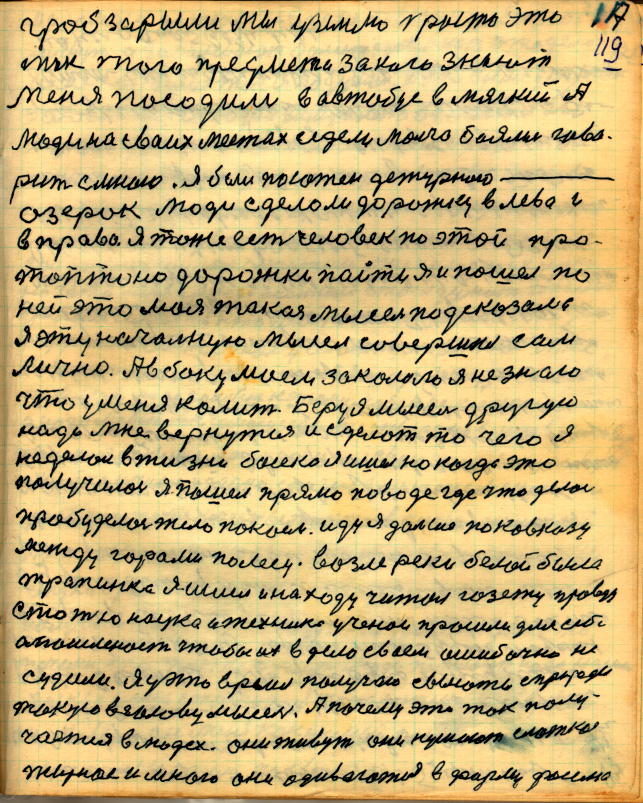 17
119
гроб зарыли мы уземлю просто это
так того предмета закого знают
меня посодили вавтобус в мягкий А
люди на сваих местах седели молчо боялис гова-
рит смною. Я были посажен дежурного
озерок люди сделоли дорожку в лева и
в права. Я тоже есть человек по этой про-
топтоно дорожки пойти я и пошел по
ней это моя такая мысел подсказала
я эту началную мысел совершил сам
лично. А в боку моем закололо я не знаю
что у меня колит. Беру я мысел другую
надо мне вернутся и сделот то чего я
неделал в жизни босеком шел но когда это
получилос я пошел прямо по воде где что делос
пробуделос тело покоем. иду я дальше по ковказу
между горами полесу. возле реки белой была
трапинка я шел и находу читал газету правду
статью наука и техника ученаи просили для себе
смышленост чтобы их в дело сваем ошибочно не
судили. Я у это время получаю свыкоть сприроды
такую в голову мысел. А почему это так полу-
чается в людех. они живут они кушают сладко
жирное и много они одеваются в форму фасона